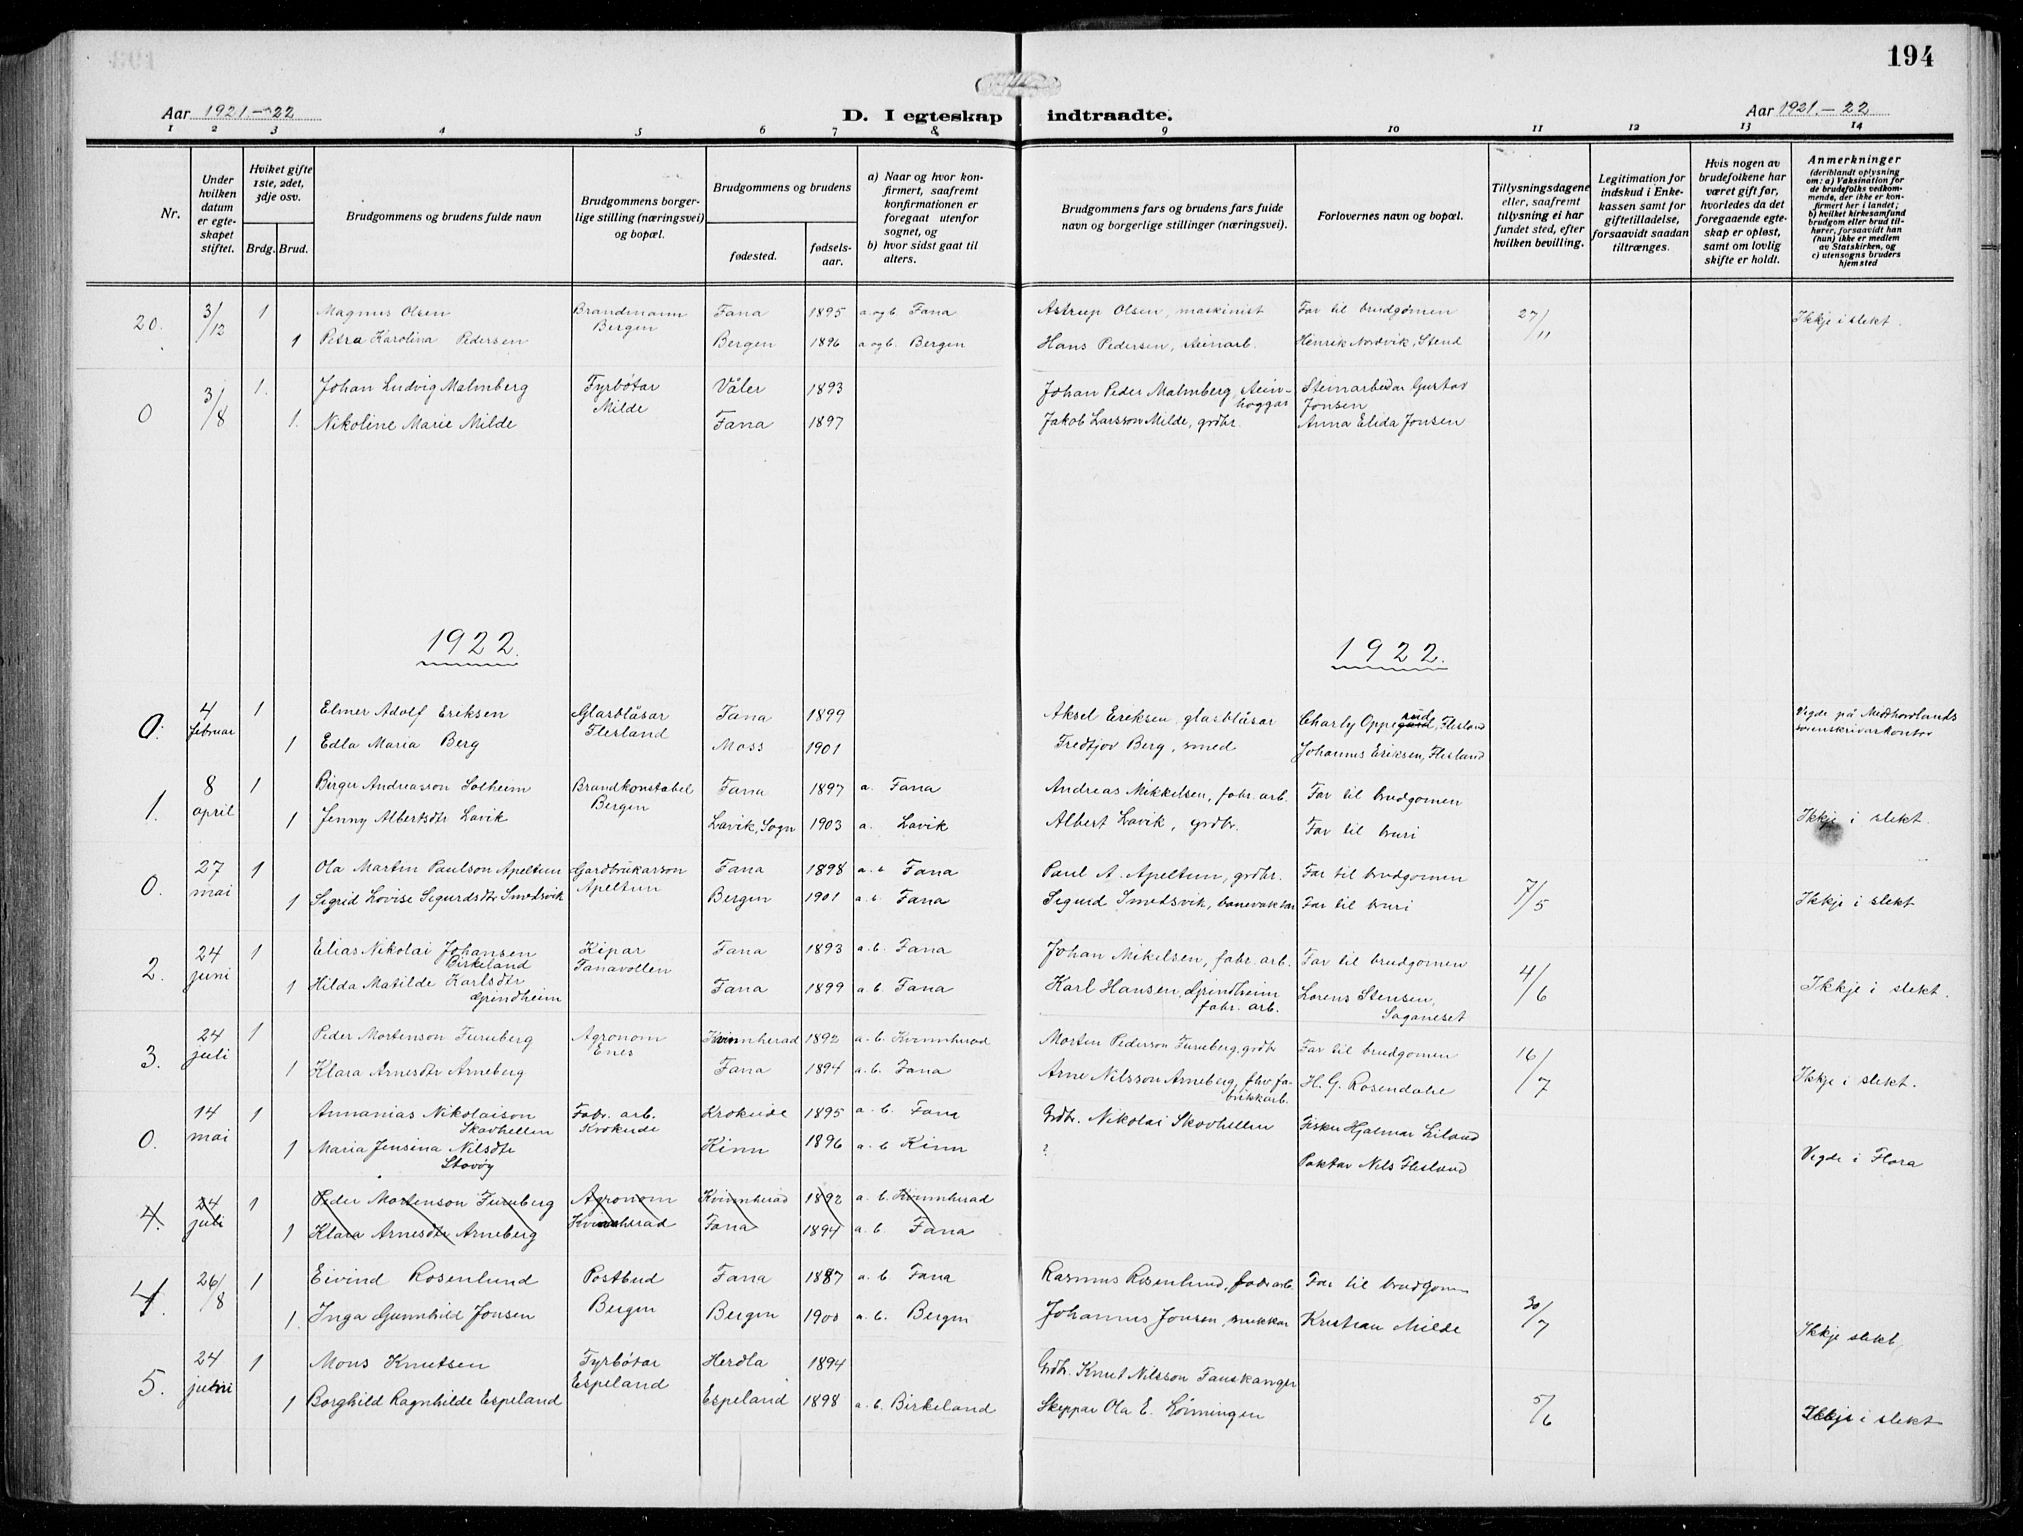 194
Aar 1921.-22
D. I egteskap indtraadte.
Aar 1921.-22
1 2 3 4 5 6 7 8 9 10 11 12 13 14
Nr.
Under hvilken datum er egteskapet stiftet.
Hviket gifte 1ste, 2det, 3dje osv.
Brdg. Brud.
Brudgommens og brudens fulde navn
Brudgommens borgerlige stilling (næringsvei) og bopæl.
Brudgommens og brudens
fødested.
fødselsaar.
a) Naar og hvor konfirmert, saafremt konfirmationen er foregaat utenfor sognet, og
b) hvor sidst gaat til alters.
Brudgommens fars og brudens fars fulde navn og borgerlige stillinger (næringsvei).
Forlovernes navn og bopæl.
Tillysningsdagene eller, saafremt tillysning ei har fundet sted, efter hvilken bevilling.
Legitimation for indskud i Enkekassen samt for giftetilladelse, forsaavidt saadan tiltrænges.
Hvis nogen av brudefolkene har været gift før, hvorledes da det foregaaende egteskap er opløst, samt om lovlig skifte er holdt.
Anmerkninger
(deriblandt oplysning om: a) Vaksination for de brudefolks vedkommende, der ikke er konfirmert her i landet;
b) hvilket kirkesamfund brudgom eller brud tilhører, forsaavidt han (hun) ikke er medlem av Statskirken, og
c) utensogns bruders hjemsted
20. 3/12 1 Magnus Olsen Brandmann Bergen Fana 1895 a. og b. Fana Astrup Olsen, maskinist Far til brudgomen 27/11 Ikkje i slekt.
1 Petra Karolina Pedersen Bergen 1896 a og b. Bergen Hans Pedersen, steinarb. Henrik Nordvik, Stend
0 3/8 1. Johan Ludvig Malmberg Fyrbøtar Milde Våler 1893 Johan Peder Malmberg, steinhoggar Steinarbeidar Gustav Jonsen
1. Nikoline Marie Milde Fana 1897 Jakob Larsson Milde, grdbr. Anna Elida Jonsen
1922.
1922.
0. 4 februar 1 Elmer Adolf Eriksen Glasblåsar Flesland Fana 1899 Aksel Eriksen, glasblåsar Charly Oppegaard rud, Flesland Vigde på Midhordlands sorenskrivarkontor
1 Edla Maria Berg Moss 1901 Fredtjov Berg, smed Johannes Eriksen, Flesland
1. 8 april 1 Birger Andreasson Solheim Brandkonstabel Bergen Fana 1897 a. Fana Andreas Mikkelsen, fabr. arb. Far til brudgomen
1 Jenny Albertsdtr Lavik Lavik, Sogn 1903 a. Lavik Albert Lavik, grdbr. Far til bruri Ikkje i slekt.
0. 27 mai 1 Ola Martin Paulson Apeltun Gardbrukarson Apeltun Fana 1898 a. b Fana Paul A. Apeltun, grdbr. Far til brudgomen 7/5
1 Sigrid Lovise Sigurdsdtr Smedsvik Bergen 1901 a. b. Fana Sigurd Smedsvik, banevaktar Far til bruri Ikkje i slekt
2. 24 juni 1 Elias Nikolai Johansen Birkeland Kipar Fanavollen Fana 1893 a. b. Fana Johan Mikelsen, fabr. arb. Far til brudgomen 4/6
1 Hilda Matilde Karlsdtr Grindheim Fana 1899 a. b. Fana Karl Hansen Grindheim fabr. arb. Lorens Stensen, Saganeset Ikkje i slekt.
3. 24 juli 1 Peder Mortenson Furuberg Agronom Enes Kvinnherad 1892 a. b. Kvinnherad Morten Pederson Furuberg, grdbr Far til brudgomen 16/7
1 Klara Arnesdtr Arneberg Fana 1894 a. b. Fana Arne Nilsson Arneberg, fhv. fabrikkarb. H. G. Rosendahl Ikkje i slekt.
0. 14 mai 1 Annanias Nikolaison Skavhellen Fabr. arb. Krokeide Krokeide 1895 a. b. Fana Grdbr. Nikolai Skavhellen Fisker Hjalmar Liland
1 Maria Jensina Nilsdtr Stovøy Kinn 1896 a. b Kinn ? Paktar Nils Flesland Vigde i Flora
4. 24 juli 1 Peder Mortenson Furuberg Agronom Kvinnherad Kvinnherad 1892 a. b. Kvinnherad
1 Klara Arnesdtr Arneberg Fana 1894 a. b. Fana
4. 26/8 1 Eivind Rosenlund Postbud Bergen Fana 1887 a. b Fana Rasmus Rosenlund, fabr arb. Far til brudgom 30/7
1. Inga Gunnhild Jonsen Bergen 1900 a. b. Bergen Johannes Jonsen, snekkar Kristian Milde Ikkje slekt,
5. 24 juni 1 Mons Knutsen Fyrbøtar Espeland Herdla 1894 Grdbr. Knut Nilsson Fauskanger
1 Borghild Ragnhilde Espeland Espeland 1898 a. b. Birkeland Skyppar Ola E. Lønningen 5/6 Ikkje i slekt